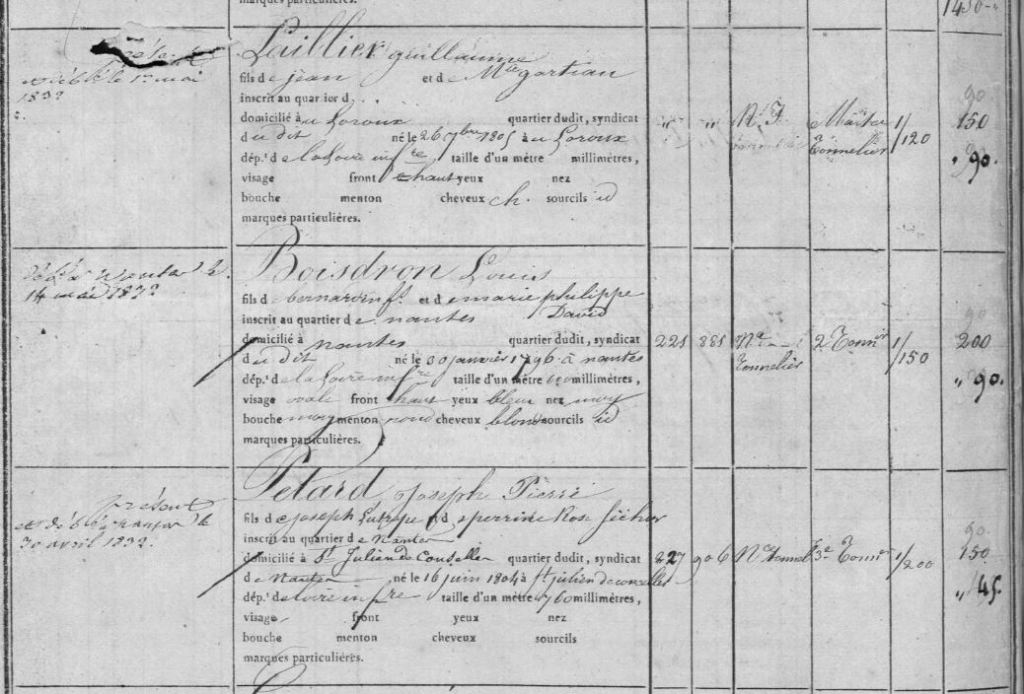 marques particulières.
1450
présent
et déb. le 1er mai
1832
Laillier guillaume
fils de jean et de Mie gartian
inscrit au quartier d
domicilié au Loroux quartier dudit, syndicat
du dit né le 26 7bre 1805 à au Loroux
dép.t de la Loire infre taille d'un mètre millimètres,
visage front haut yeux nez
bouche menton cheveux ch. sourcils id
marques particulières.
" " N. I. Maître Tonnelier 1/120
90
150
" 90.
déb. à Nantes le
14 mai 1832
Boisdron Louis
fils de bernardin fs et de marie philippe
David
inscrit au quartier de nantes
domicilié à nantes quartier dudit, syndicat
du dit né le 30 janvier 1796 à nantes
dép.t de la Loire infre taille d'un mètre 620 millimètres,
visage ovale front haut yeux bleu nez moy
bouche moy menton rond cheveux blond sourcils id
marques particulières.
221 881 Ne Tonnelier 2e Tonnier 1/150
90
200
" 90.
présent
et débé à nantes le
30 avril 1832.
Petard Joseph Pierre
fils de joseph Eutrope et d perrine Rose
inscrit au quartier de Nantes
domicilié à St Julien de Concelles quartier dudit, syndicat
de Nantes né le 16 juin 1804 à st julien de concelles
dép.t de loire infre taille d'un mètre 760 millimètres,
visage front yeux nez
bouche menton cheveux sourcils
marques particulières.
427 906 Ne tonnel 3e Tonnier 1/200
90
150
" 45.